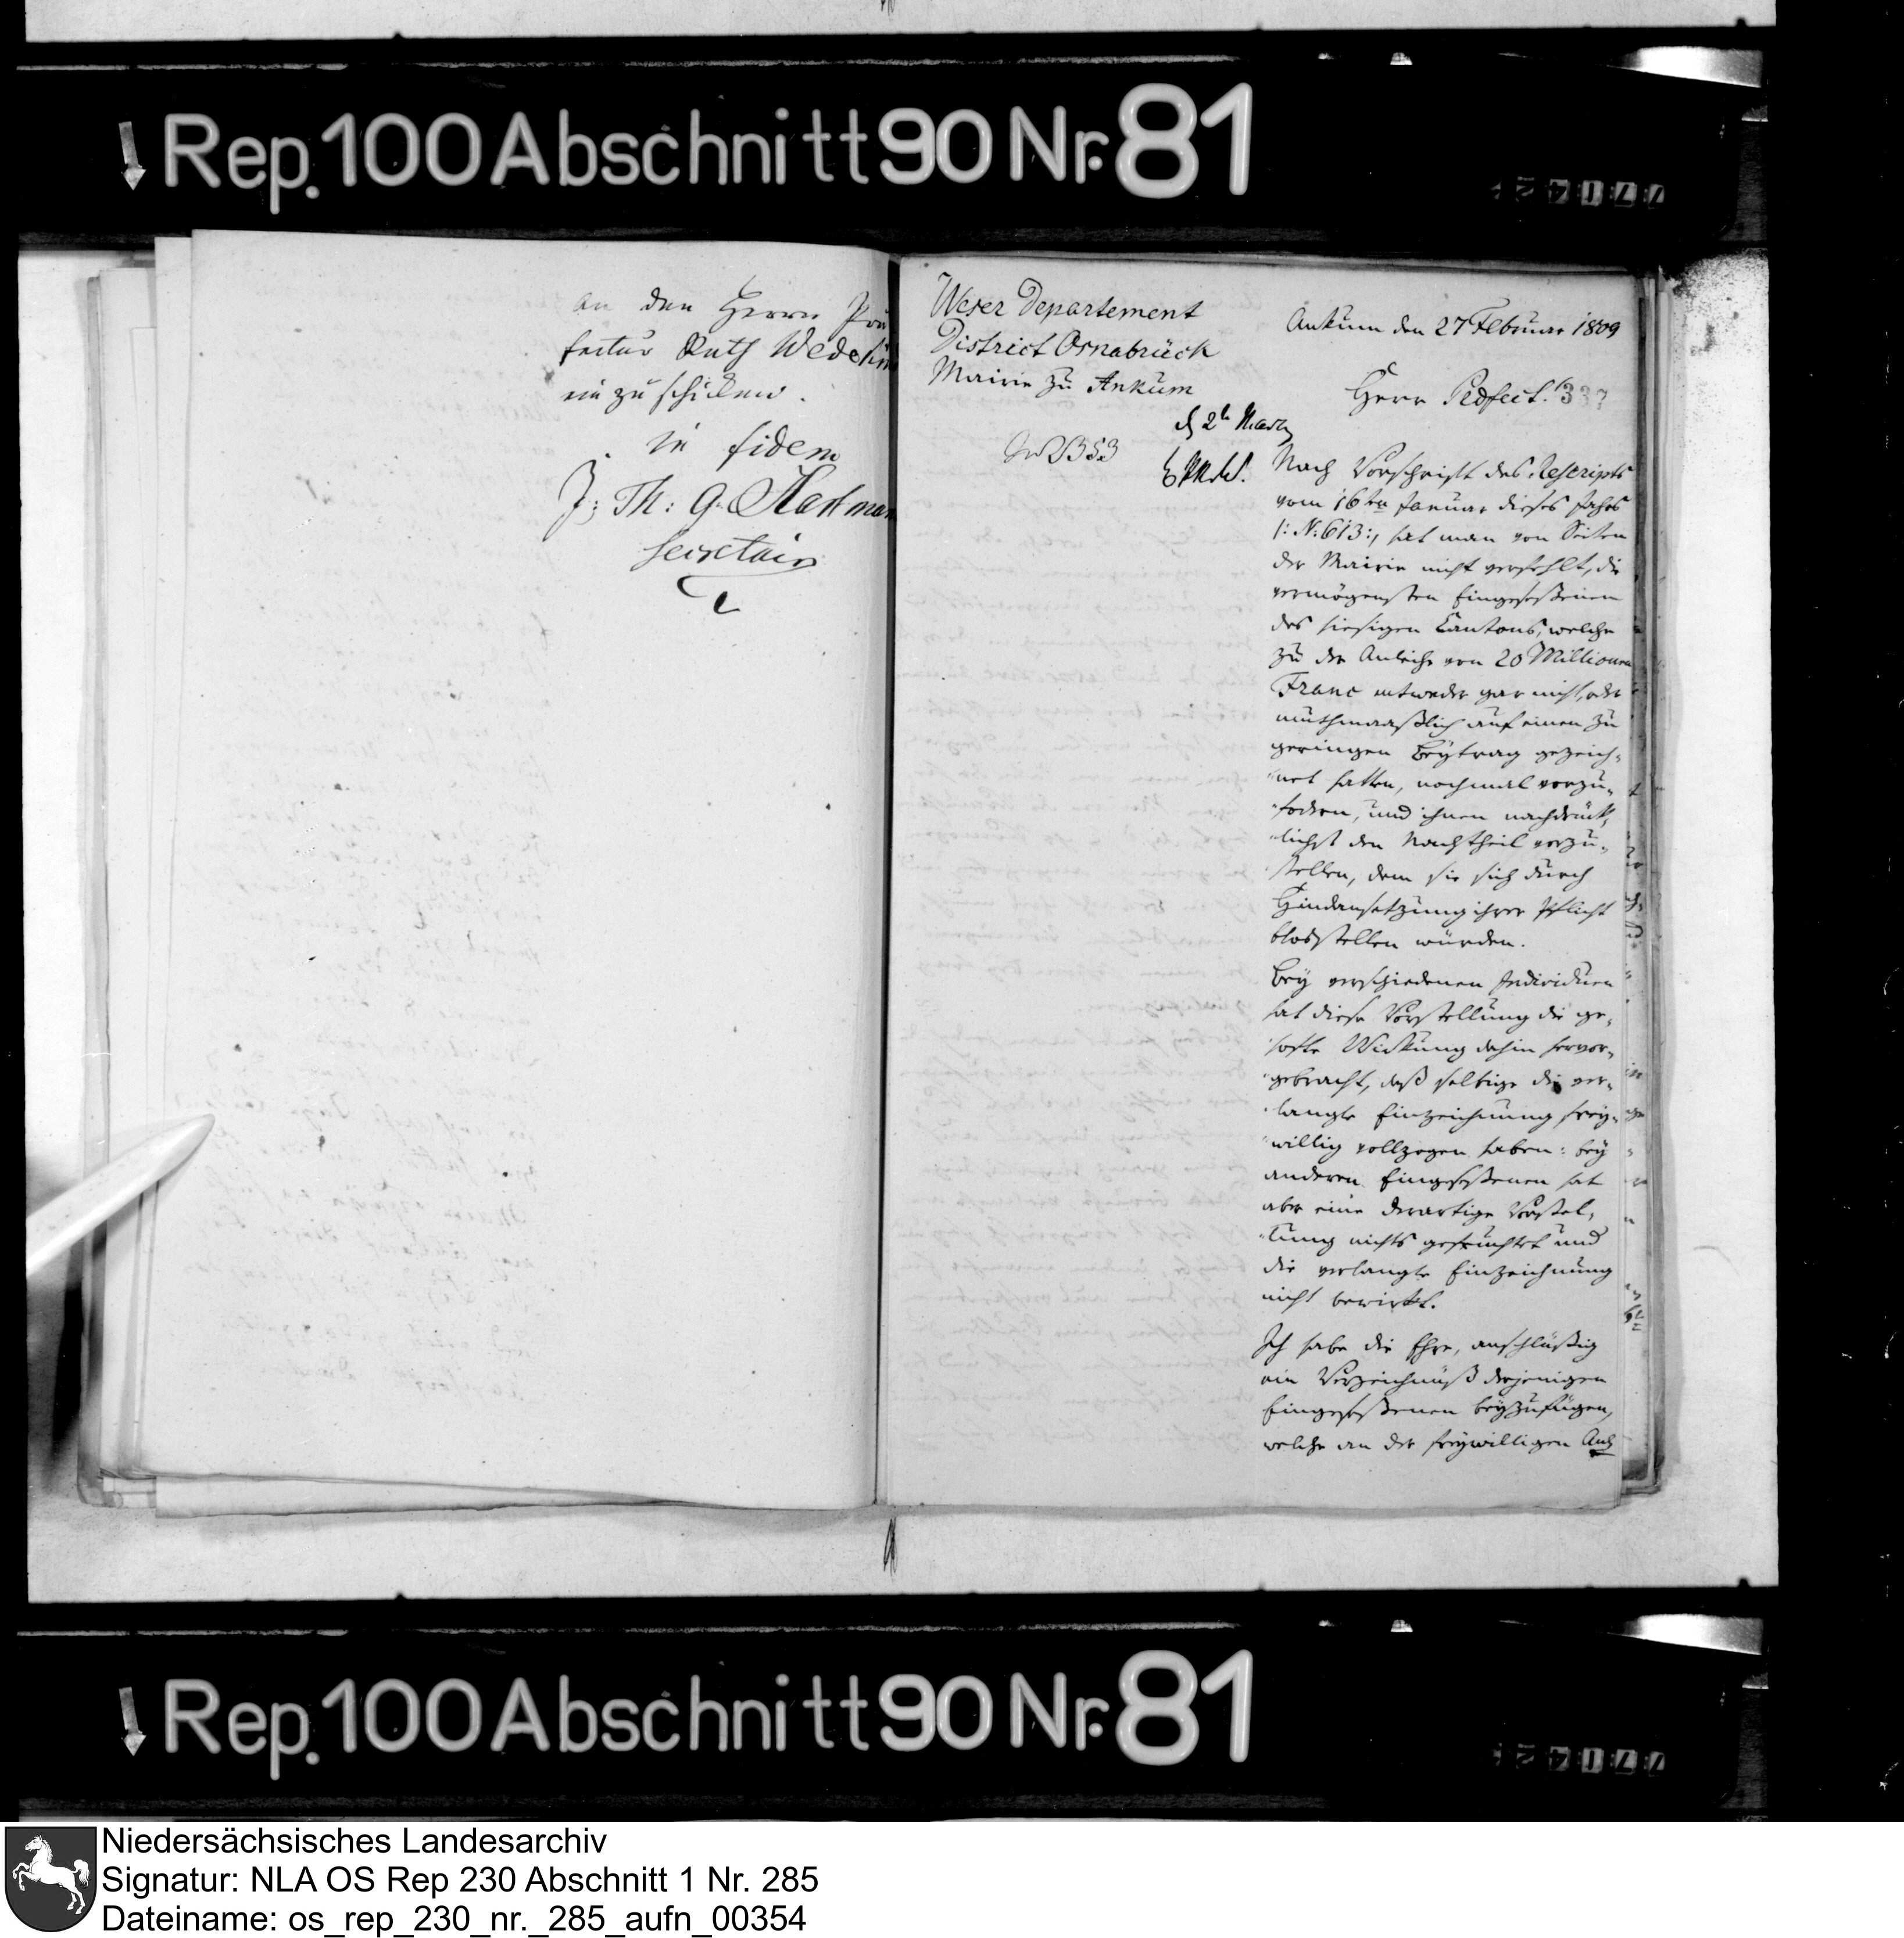 Rep. 100 Abschnitt 90 Nr. 81
an den Herrn Prä
fectur Rath Wedekin
einzuschicken.
in fidem
J. Th: G. Hartman
secretair
Weser Departement
District Osnabrück
Mairie zu Ankum
Ankum den 27 Februar 1809
Herr Präfect!
337
d 2t Martz
No 2353
Nach Vorschrift des Rescripts
vom 16ten Januar dieses Jahrs
/: N. 613 :/ hat man von Seiten
der Mairie nicht verfehlt, die
vermögensten Eingeseßenen
des hiesigen Cantons, welche
zu der Anleihe von 20 Millionen
Franc entweder gar nicht, oder
muthmaaßlich auf einen zu
geringen Beytrag gezeich-
net hatten, nochmal vorzu-
fodern, und ihnen nachdrück-
lichst den Nachtheil vorzu-
stellen, dem sie sich durch
Hindansetzung ihrer Pflicht
blosstellen würden.
Bey verschiedenen Individuen
hat diese Vorstellung die ge-
hofte Wirkung dahin hervor-
gebracht, daß selbige die ver-
langte Einzeichnung frey-
willig vollzogen haben: bey
anderen Eingeseßenen hat
aber eine derartige Vorstel-
lung nichts gefruchtet und
die verlangte Einzeichnung
nicht bewirkt.
Ich habe die Ehre, anschlüßig
ein Verzeichnüß derjenigen
Eingeseßenen beyzufügen,
welche an der freywilligen Anl
Rep. 100 Abschnitt 90 Nr. 81
Niedersächsisches Landesarchiv
Signatur: NLA OS Rep 230 Abschnitt 1 Nr. 285
Dateiname: os_rep_230_nr._285_aufn_00354